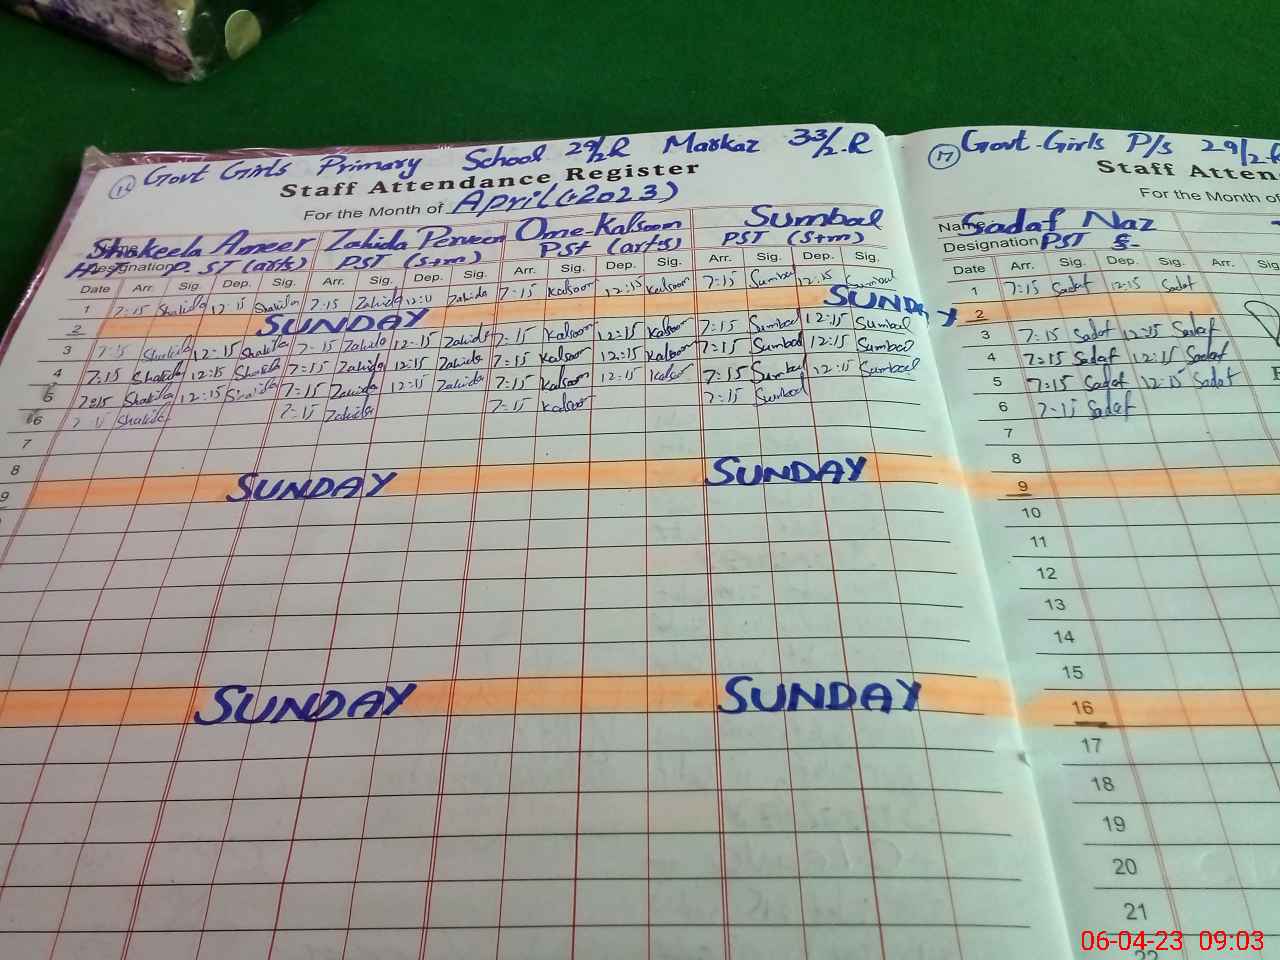 16 Govt Girls Primary School 29/2.R Markaz 33/2.R
Staff Attendance Register
For the Month of April (2023)
Name Shakeela Ameer Zahida Perveen Ome-Kalsoom Sumbal
Designation P.ST (arts) PST (S+m) PST (arts) PST (S+m)
Date Arr. Sig. Dep. Sig. Arr. Sig. Dep. Sig. Arr. Sig. Dep. Sig. Arr. Sig. Dep. Sig.
1 7:15 Shakila 12:15 Shakila 7:15 Zahida Zahida 7:15 Kalsoom 12:15 Kalsoom 7:15 Sumbal 12:15 Sumbal
2 SUNDAY SUNDAY
3 7:15 Shakila 12:15 Shakila 7:15 Zahida 12:15 Zahida 7:15 Kalsoom 12:15 Kalsoom 7:15 Sumbal 12:15 Sumbal
4 7:15 Shakila 12:15 Shakila 7:15 Zahida 12:15 Zahida 7:15 Kalsoom 12:15 Kalsoom 7:15 Sumbal 12:15 Sumbal
5 7:15 Shakila 12:15 Shakila 7:15 Zahida 12:15 Zahida 7:15 Kalsoom 12:15 Kalsoom 7:15 Sumbal 12:15 Sumbal
6 7:15 Shakila 7:15 Zahida 7:15 Kalsoom 7:15 Sumbal
7
8
9 SUNDAY SUNDAY
SUNDAY SUNDAY
17 Govt-Girls P/s 29/2.R
Staff Atten
For the Month of
Name Sadaf Naz
Designation PST
Date Arr. Sig. Dep. Sig. Arr. Sig.
1 7:15 Sadaf 12:15 Sadaf
2
3 7:15 Sadaf 12:15 Sadaf
4 7:15 Sadaf 12:15 Sadaf
5 7:15 Sadaf 12:15 Sadaf
6 7:15 Sadaf
7
8
9
10
11
12
13
14
15
16
17
18
19
20
21
22
06-04-23 09:03